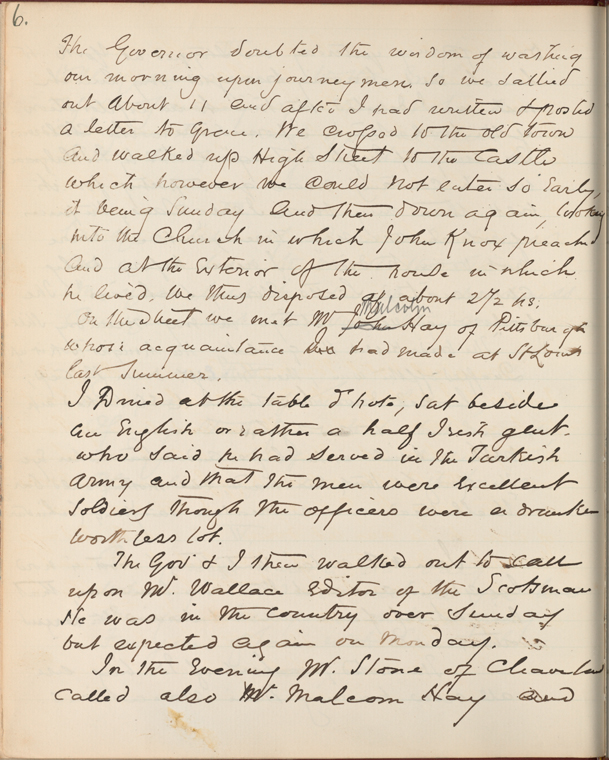 6.
The Governor doubted the wisdom of wasting
our morning upon journeymen. So we sallied
out about 11 and after I had written & posted
a letter to Grace. We crossed to the old town
and walked up High Street to the Castle
which however we could not enter so early,
it being Sunday and then down again, looking
into the Church in which John Knox preached
and at the exterior of the house in which
he lived. We thus disposed of about 2 1/2 hs.
Malcolm
On the street we met Mr John Hay of Pittsburgh
whose acquaintance we had made at St Louis
last Summer.
I Dined at the table d'hote, sat beside
an English or rather a half Irish gent.
who said he had served in the Turkish
army and that the men were excellent
soldiers though the officers were a drunken
worthless lot.
The Gov & I then walked out to call
upon Mr. Wallace Editor of the Scotsman
He was in the country over Sunday
but expected again on Monday.
In the Evening Mr. Stone of
called also Mr. Malcom Hay and